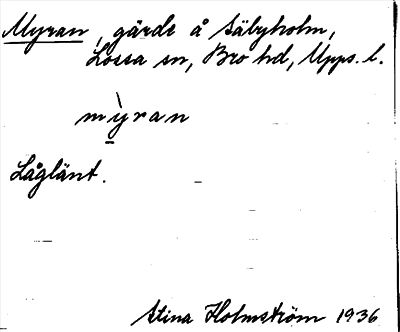 Myran, gärde å Säbyholm,
Låssa sn, Bro hd, Upps. l.
mỳran
Låglänt.
Stina Holmström 1936